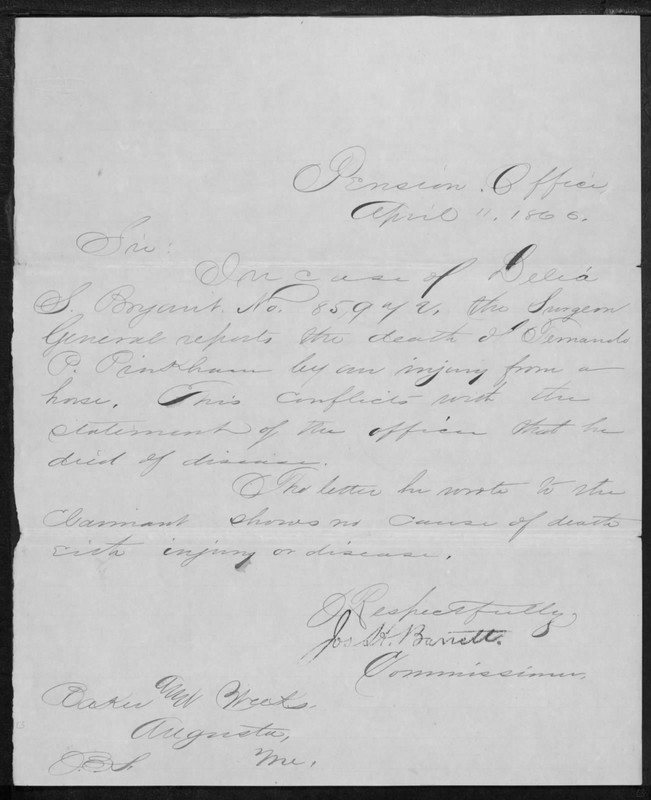 Pension Office,
April 11, 1866.
Sir:
In case of Delia
S. Bryant No. 859 the Surgeon
General reports the death of Fernando
P. Pinkham by an injury from a
horse. This conflicts with the
statement of the officer that he
died of disease.
The letter he wrote to the
Claimant shows no cause of death
injury or disease.
Respectfully,
Jos. H. Barrett.
Commissioner.
Baker and Weeks.
Augusta,
Me.